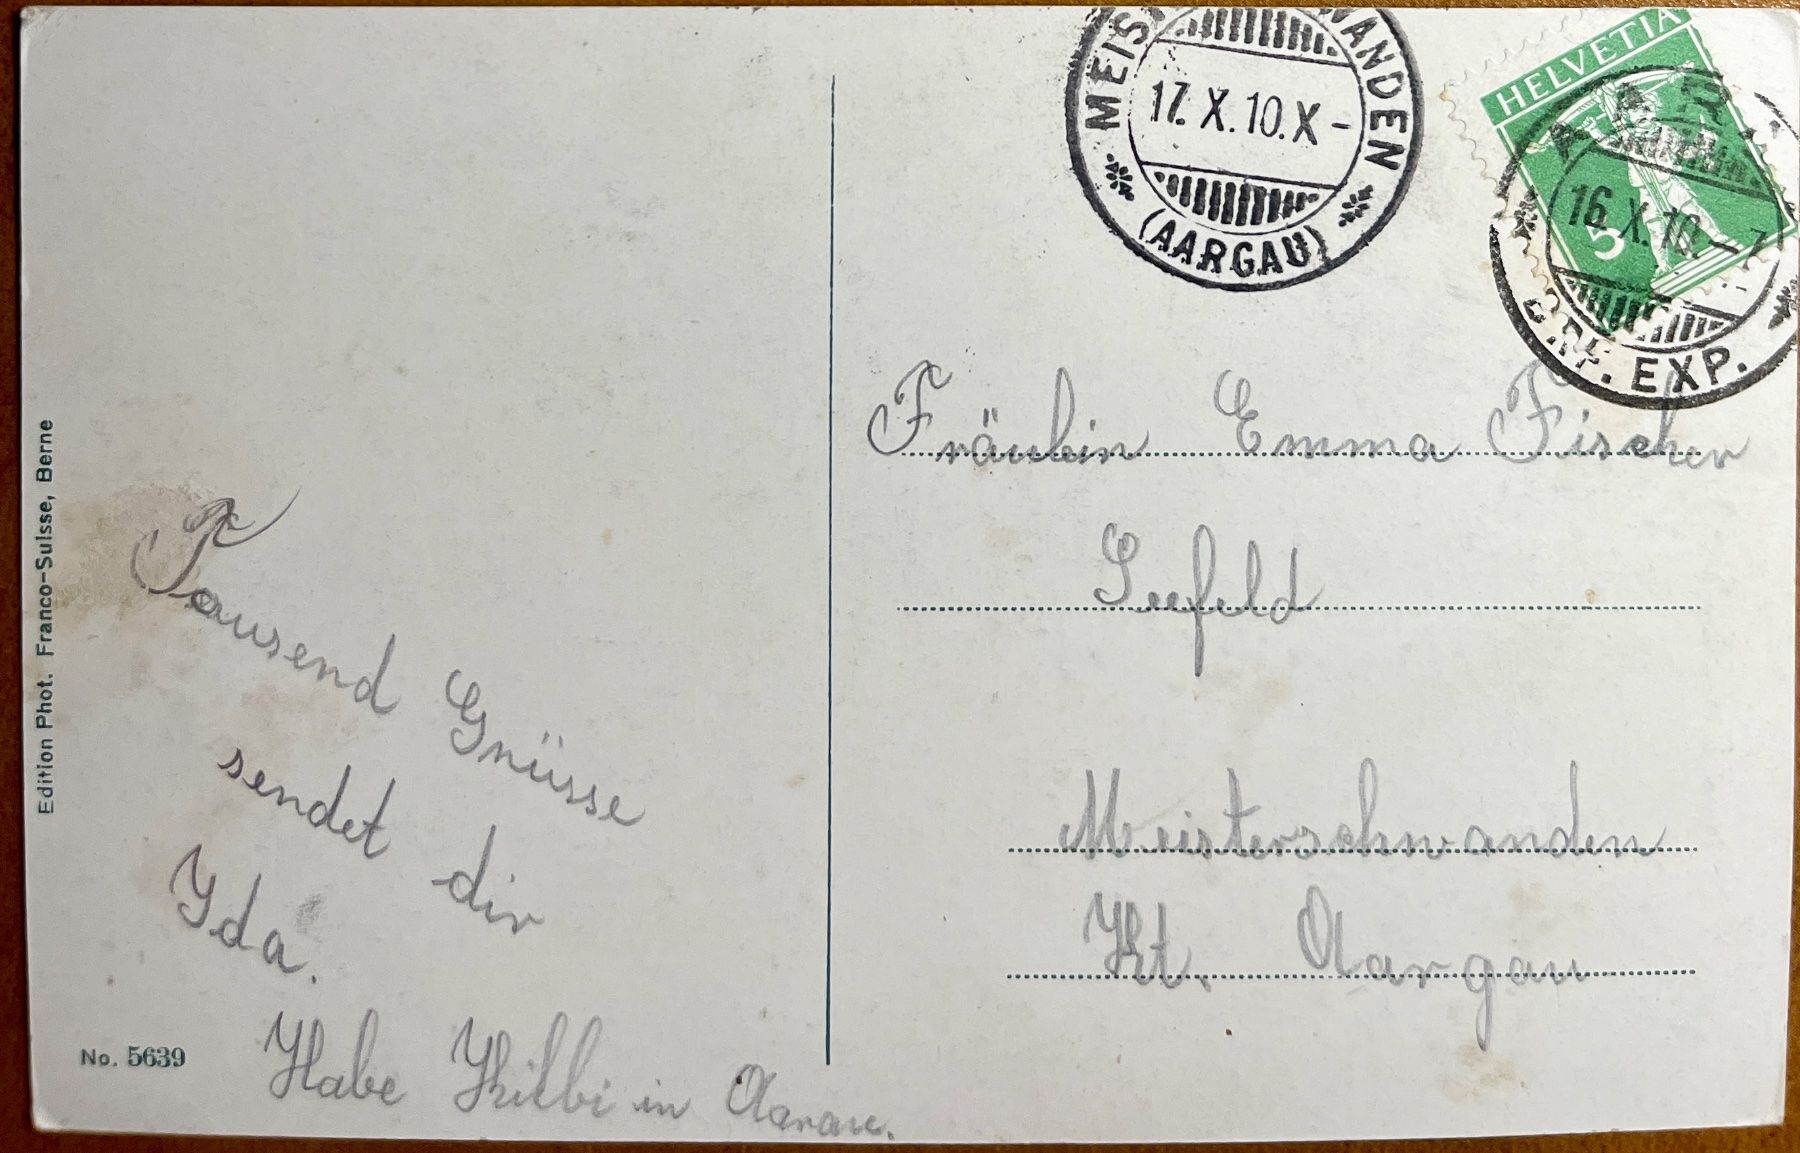 MEIS WANDEN
17. X. 10. X -
(AARGAU)
HELVETIA
5
16. X. 10. - 7
EXP.
Edition Phot. Franco-Suisse, Berne
No. 5639
Tausend Grüsse
sendet dir
Yda.
Habe Kilbi in Aarau.
Fräulein Emma Fischer
Seefeld
Meisterschwanden
Kt. Aargau